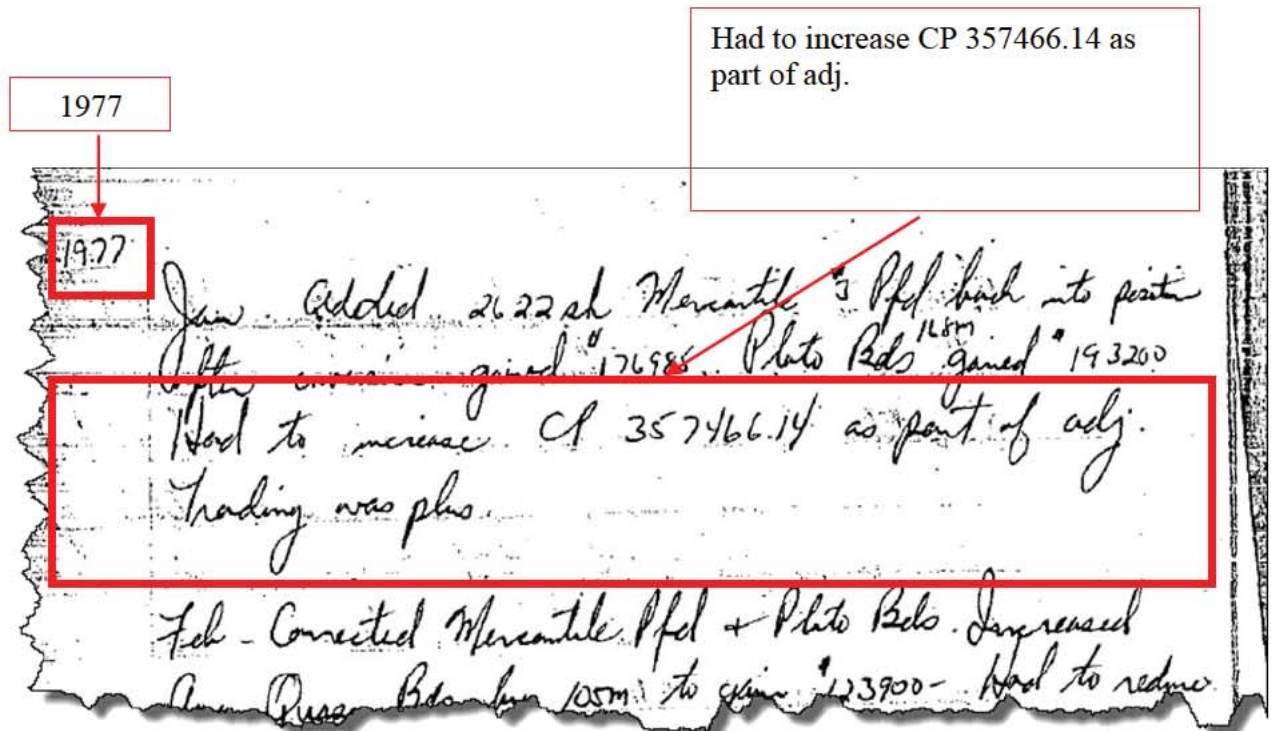 Had to increase CP 357466.14 as
part of adj.
1977
1977
Jan. Added 2622 sh Mercantile $3 Pfd back into position
168m
After gained $176985. Pluto Bds gained $193200
Had to increase CP 357466.14 as part of adj.
Trading was plus.
Feb - Corrected Mercantile Pfd + Pluto Bds. Increased
Bds by 105m to gain $123900- Had to reduce